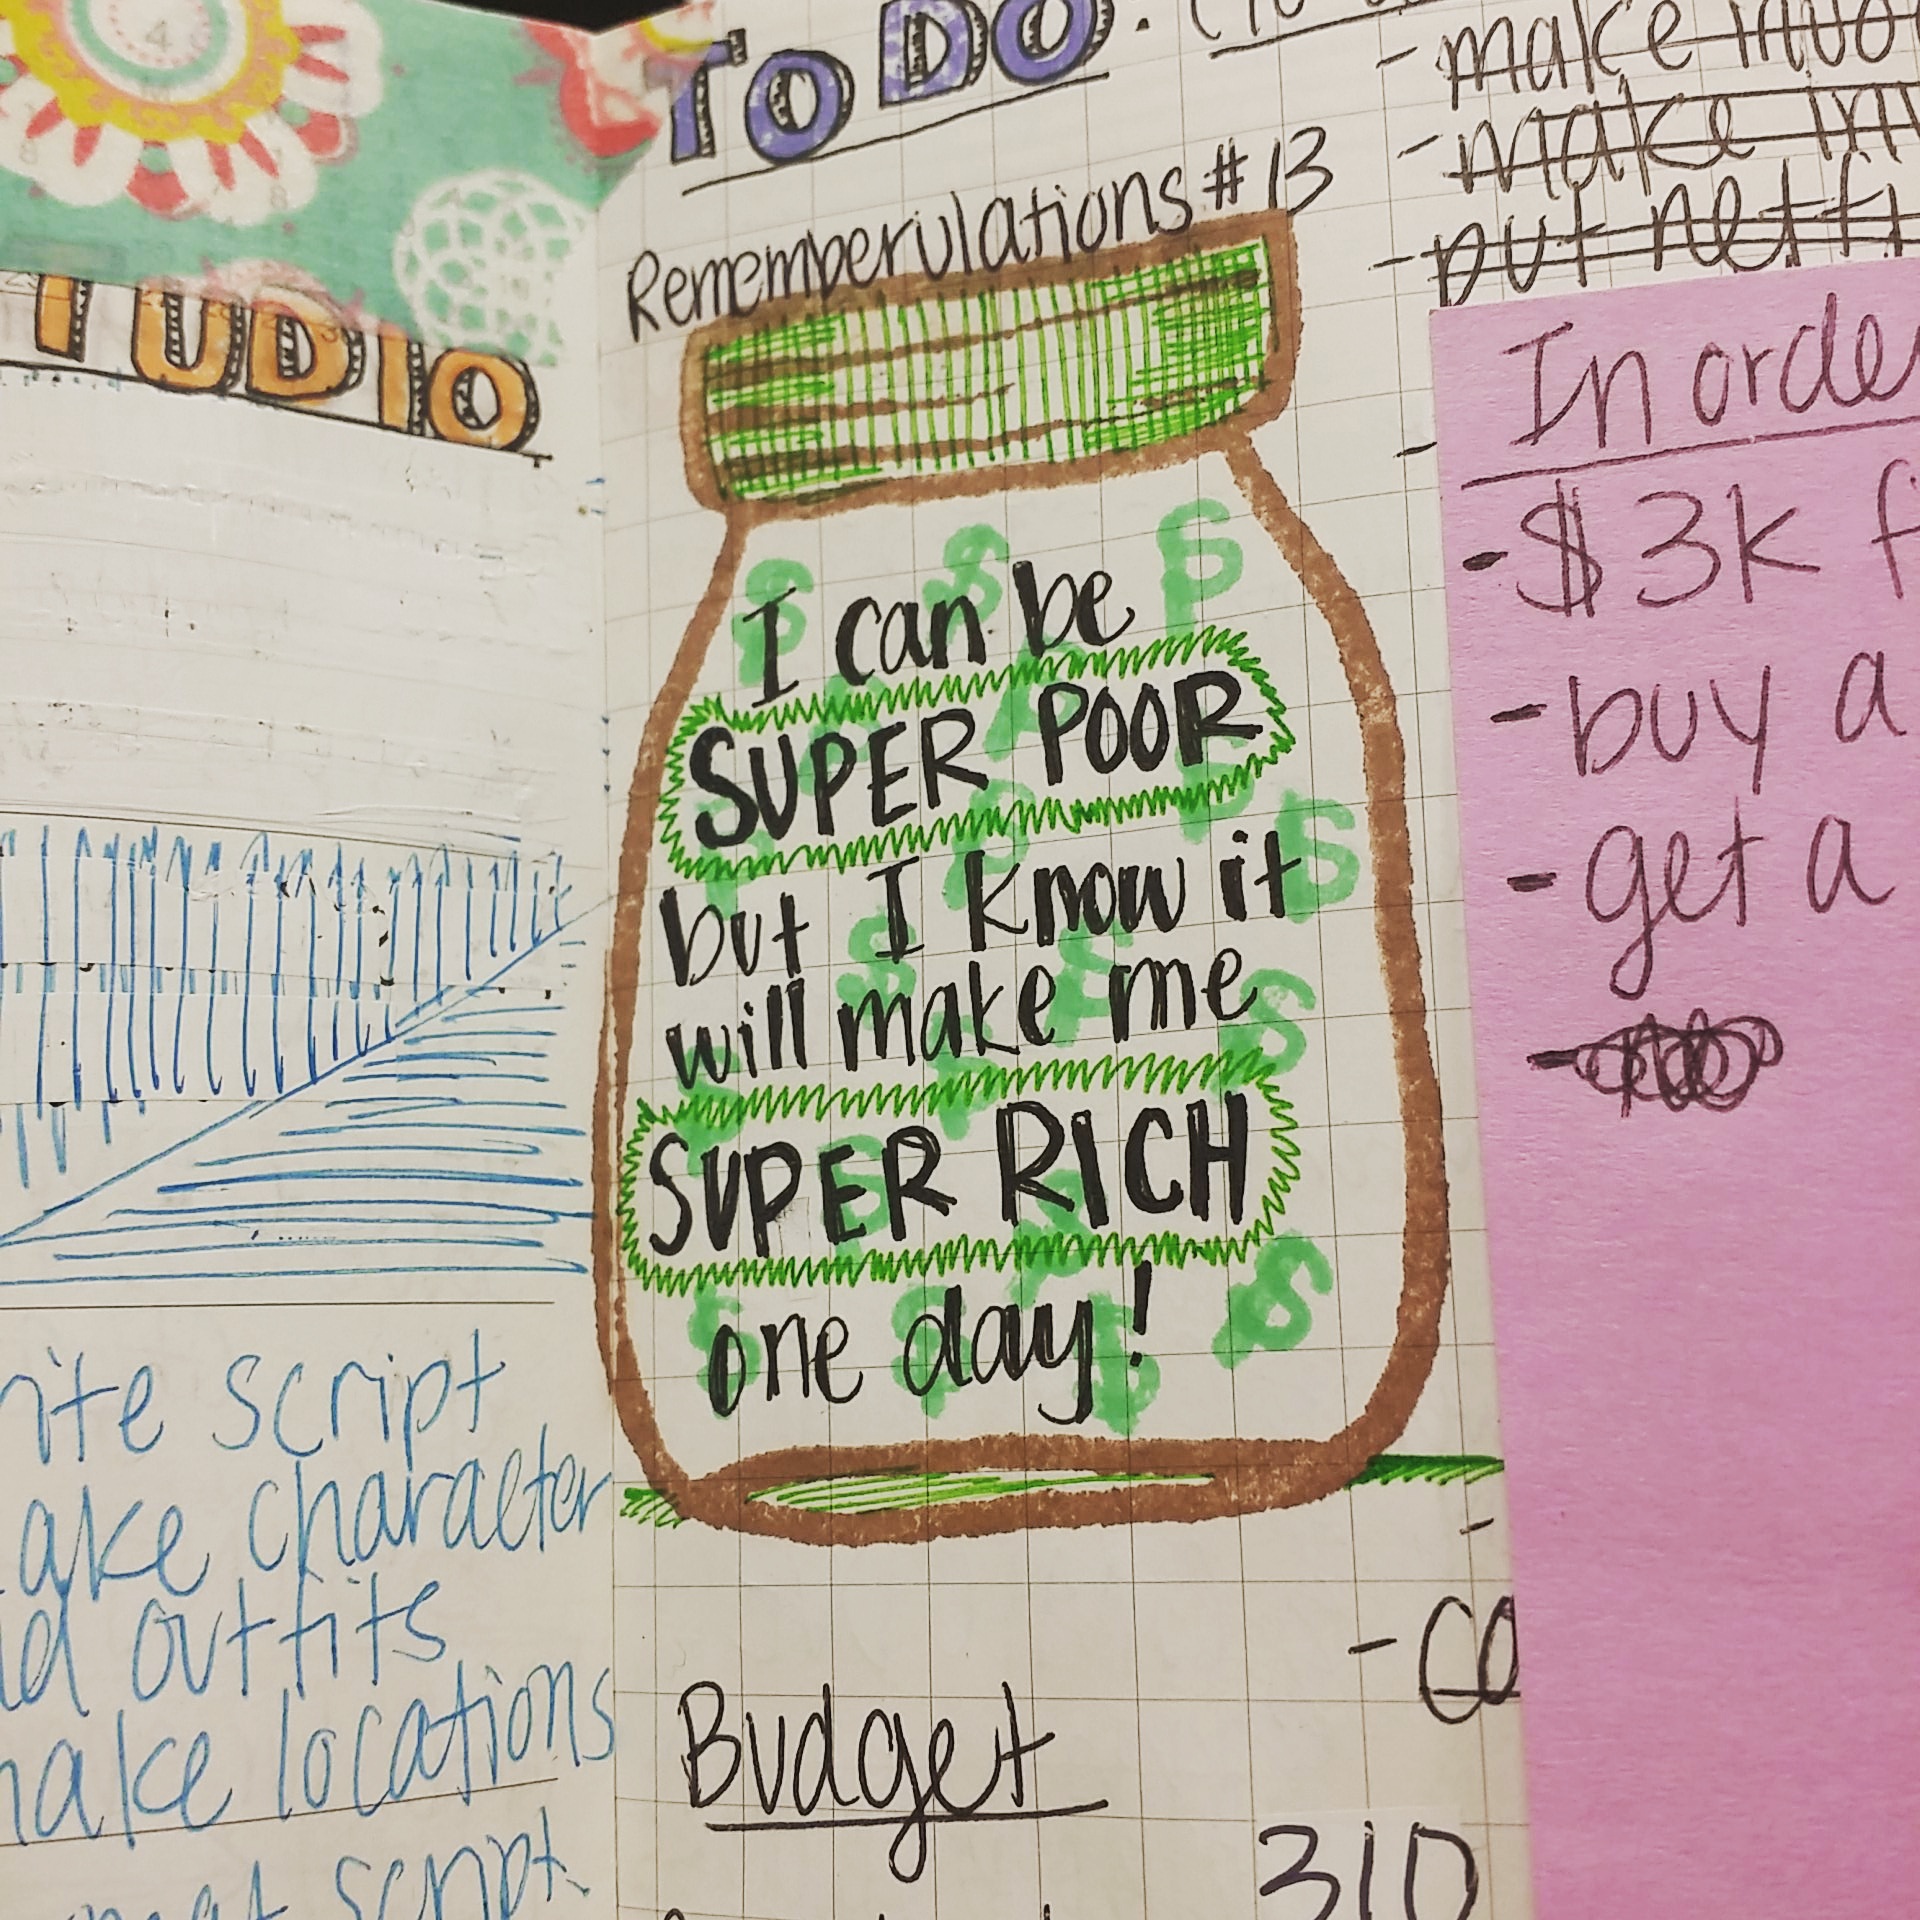 TUDIO
rite script
ake character
outfits
make locations
script
TO DO:
Rememberulations #13
I can be
SUPER POOR
but I know it
will make me
SUPER RICH
one day!
Budget
310
- make
- make
- put netfl
In orde
- $3k f
- buy a
- get a
- co